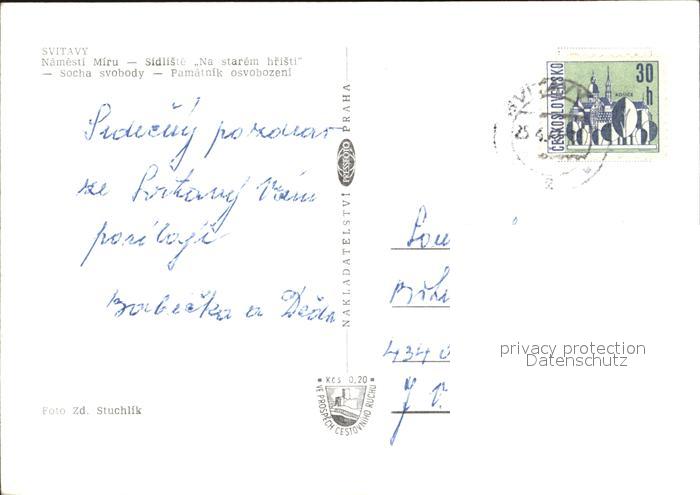 SVITAVY
Náměstí Míru — Sídliště „Na starém hřišti"
— Socha svobody — Památník osvobození
Srdečný pozdrav
ze Svitavy Vám
posílají
Babička a Děda
Foto Zd. Stuchlík
NAKLADATELSTVÍ PRESSFOTO PRAHA
Kčs 0,20
VE PROSPĚCH CESTOVNÍHO RUCHU
ČESKOSLOVENSKO
30 h
KOŠICE
434 0
privacy protection
Datenschutz